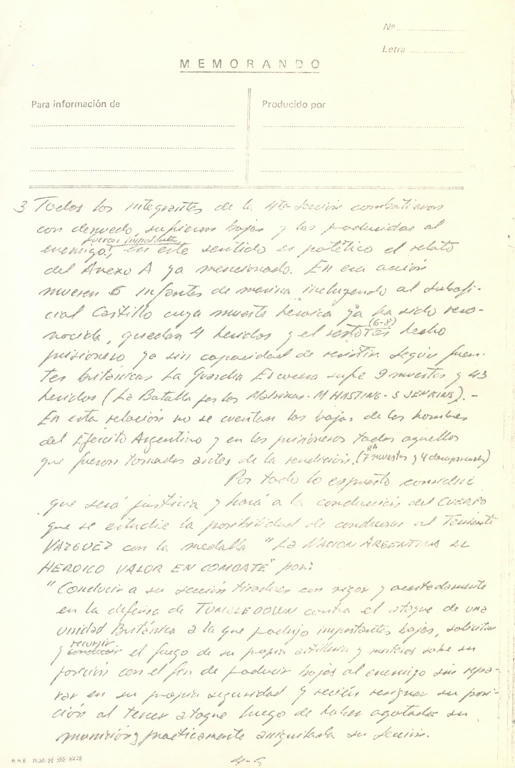 Nº
Letra
MEMORANDO
Para información de
Producido por
3 Todos los integrantes de la 4ta Sección combatieron
con denuedo, sufrieron bajas y las producidas al
fueron importantes
enemigo, en este sentido es patético el relato
del Anexo A ya mencionado. En esa acción
mueren 6 infantes de marina incluyendo al Subofi
cial Castillo cuya muerte heroica ya ha sido reco-
nocida, quedan 4 heridos y el resto es hecho
(6-8)
prisionero ya sin capacidad de resistir según fuen-
tes británicas La Guardia Escocesa sufre 9 muertos y 43
heridos (La Batalla por las Malvinas - M HASTINGS - S JENKINS). -
En esta relación no se cuentan las bajas de los hombres
del Ejército Argentino y en los prisioneros todos aquellos
que fueron tomados antes de la rendición. (7 muertos y 4 desaparecidos)
Por todo lo expuesto considero
que será justicia y hará a la conducción del CUERPO
que se estudie la posibilidad de condecorar al Teniente
VAZQUEZ con la medalla "LA NACION ARGENTINA AL
HEROICO VALOR EN COMBATE" por:
"Conducir a su sección tiradores con vigor y acertadamente
en la defensa de TUMBLEDOWN contra el ataque de una
unidad Británica a la que produjo importantes bajas, solicitar
recurrir
y el fuego de su propia artillería y morteros sobre su
posición con el fin de producir bajas al enemigo sin repa-
rar en su propia seguridad y recién resignar su posi-
ción al tercer ataque luego de haber agotado su
munición y prácticamente aniquilada su Sección.
4-5